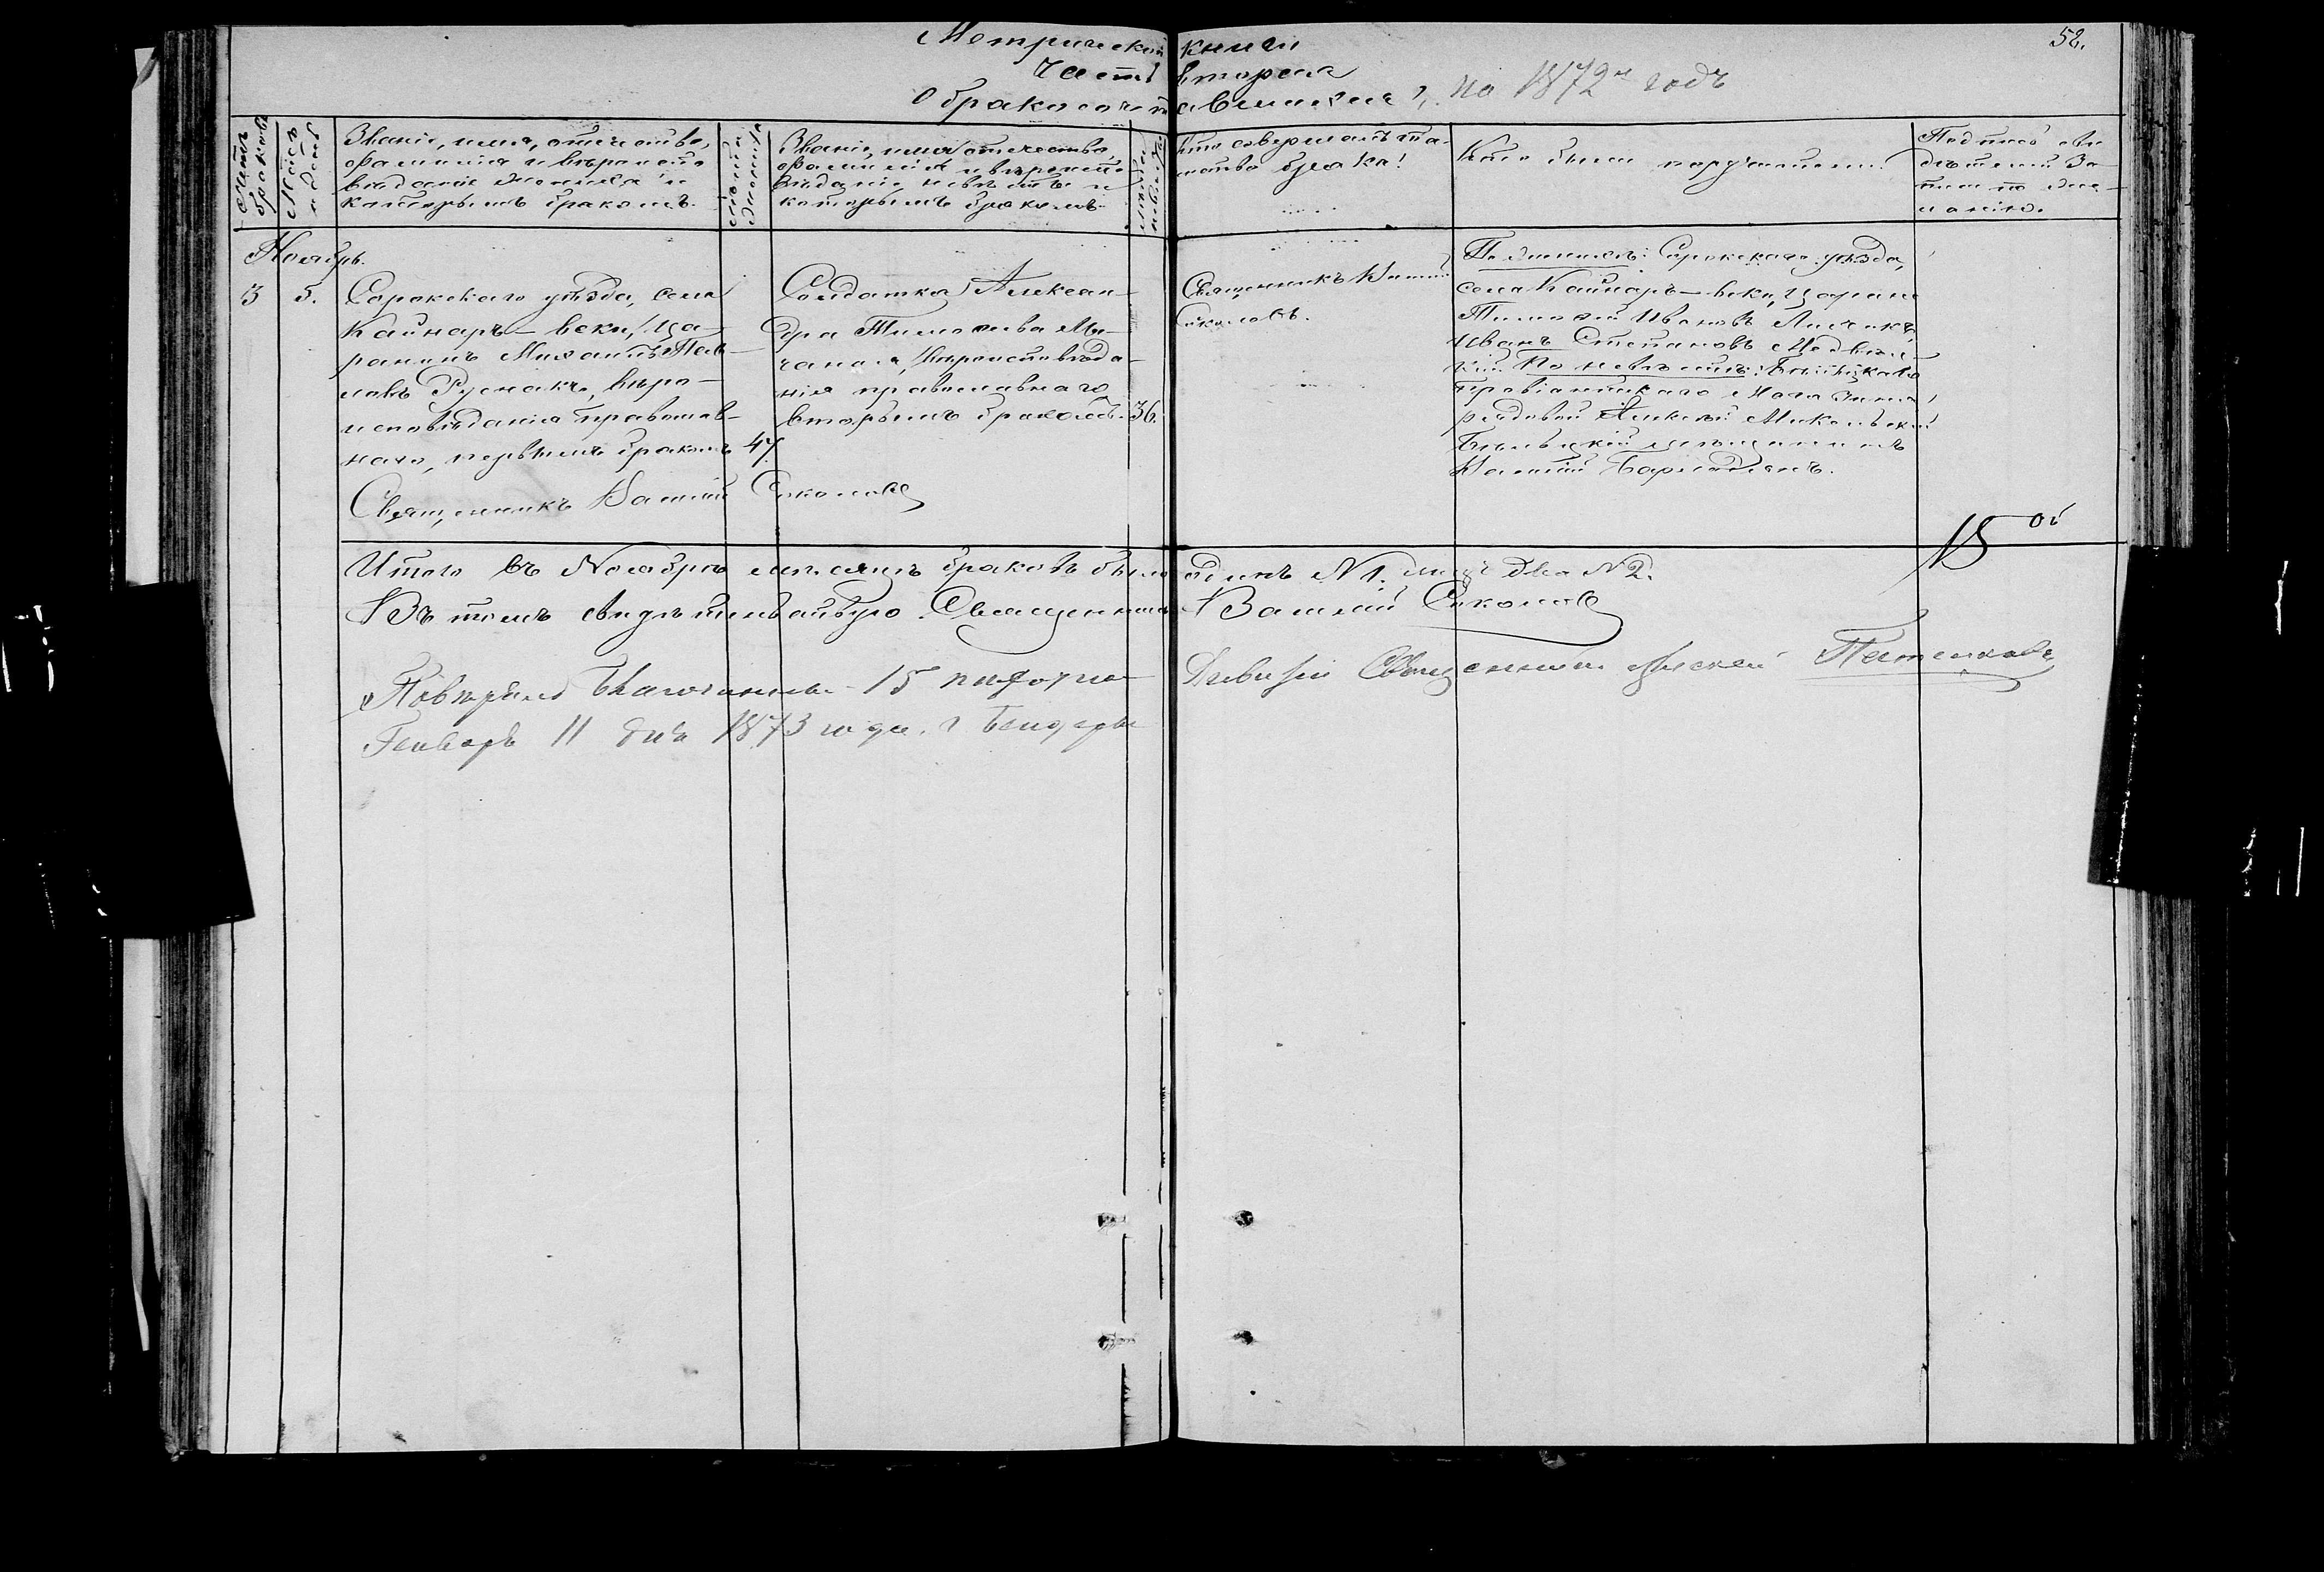 Метрической книги
58.
часть вторая
О бракосочетавшихся, на 1872й годъ
Счетъ браковъ
Мѣсяцъ и день
Званіе, имя, отечество,
фамилія и вѣроиспо-
вѣданіе жениха и
которымъ бракомъ.
Лѣта жениха
Званіе, имя, отечество,
фамилія и вѣроиспо-
вѣданіе невѣсты и
которымъ бракомъ
Лѣта невѣсты
Кто совершалъ та-
инство брака?
Кто были поручители.
Подпись сви-
дѣтелей За-
писи по же-
ланію.
Ноябрь.
3 5.
Сорокскаго уѣзда, села
Кайнаръ-веки, ца-
ранинъ Михаилъ Пав-
ловъ Руснакъ, вѣро-
исповѣданія православ-
наго, первымъ бракомъ
47.
Священникъ Василій Соколовъ
Солдатка Алексан-
дра Тимоѳева
вѣроисповѣда-
нія православнаго
вторымъ бракомъ.
36.
Священникъ Василій
Соколовъ.
По женихѣ: Сорокскаго уѣзда,
села Кайнаръ-веки, царане
Тимоѳей Ивановъ
Иванъ Степановъ
По невѣстѣ:
провіантскаго магазина
рядовой Алексѣй
мѣщанинъ
Василій
15 ой
Итого въ Ноябрѣ мѣсяцѣ браковъ было одинъ №1. лицъ два №2.
Въ томъ свидѣтельствую Священникъ Василій Соколовъ
Повѣрялъ Благочинный 15 пѣхотной Дивизіи Священникъ Алексѣй
Генварь 11 дня 1873 года. г Бендеры